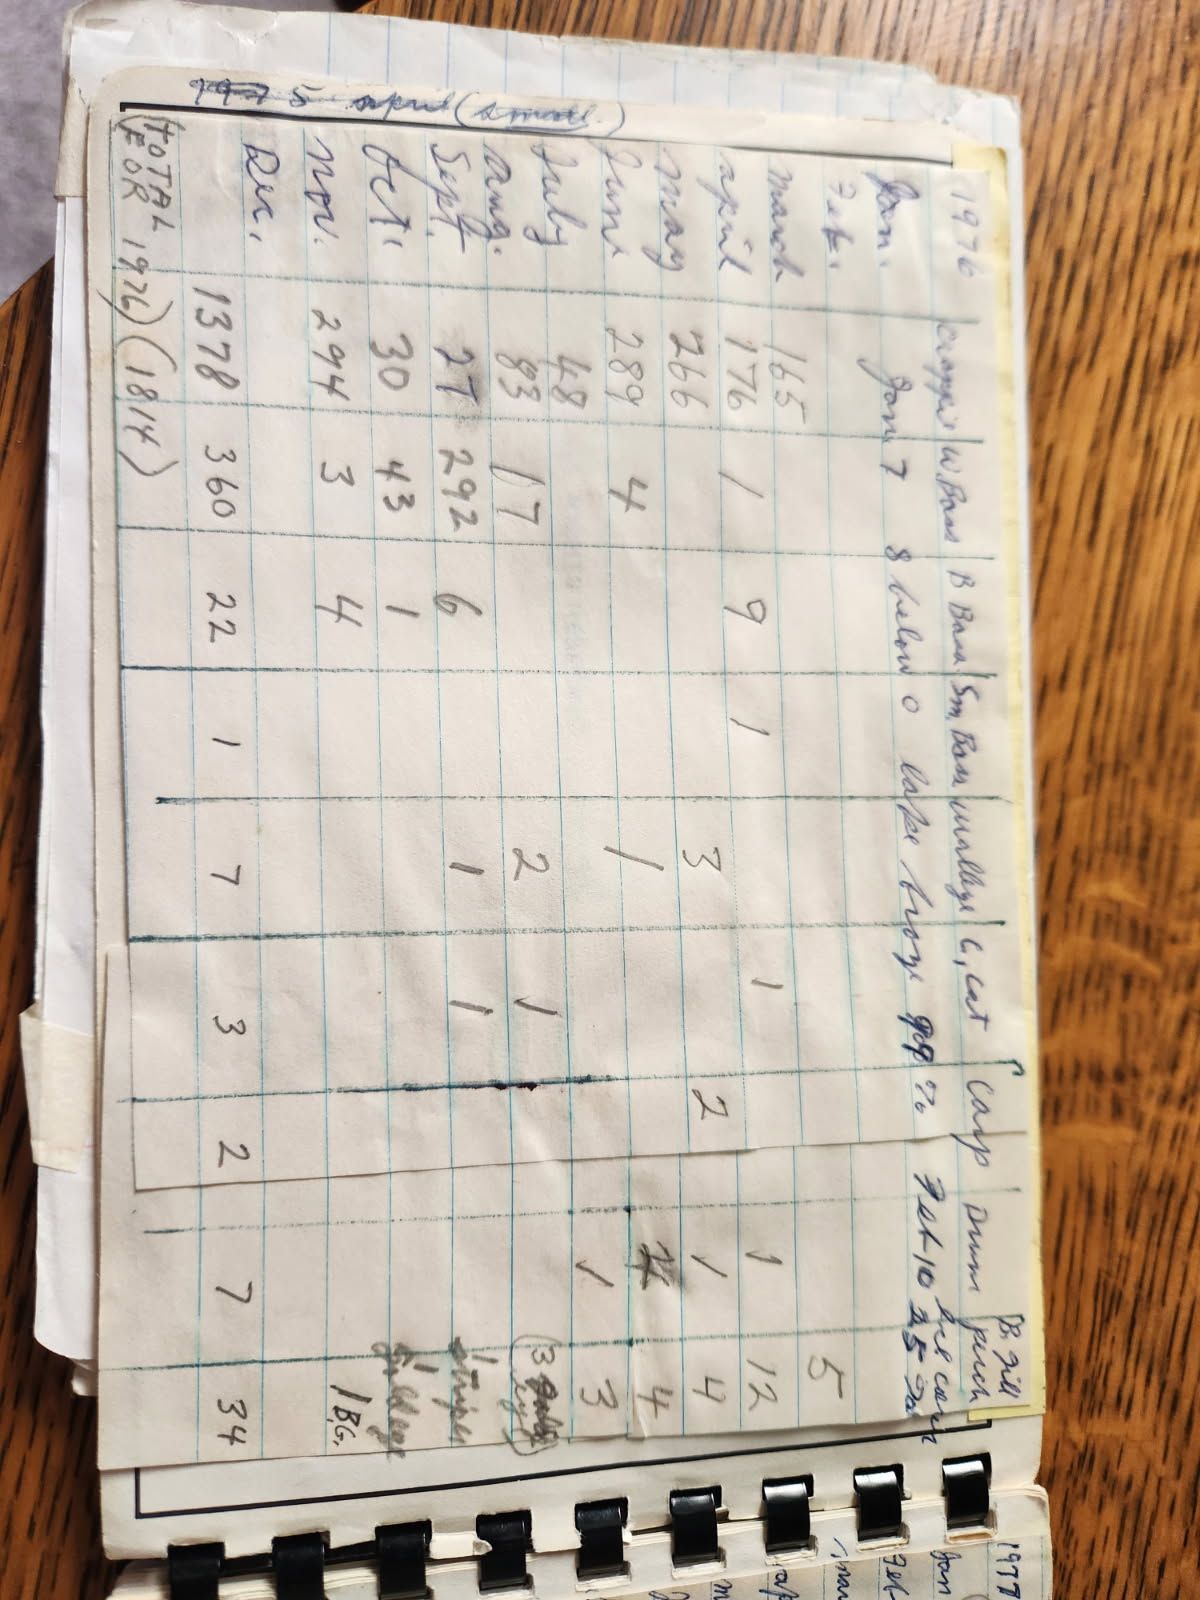 1976 Crappie W. Bass B Bass Sm. Bass Walleye C. Cat Carp Drum B. Gill perch
Jan. Jan. 7 8 below 0 lake froze Feb-10
Feb.
March 165 5
April 176 1 9 1 1 1 12
May 266 3 2 1 4
June 289 4 1 4
July 48 1 3
Aug. 83 17 2 1
Sept. 27 292 6 1 1 1
Oct. 30 43 1 1
Nov. 294 3 4 1 B.G.
Dec.
1378 360 22 1 7 3 2 7 34
(TOTAL FOR 1976) (1814)
April
1977
Jan
Feb-